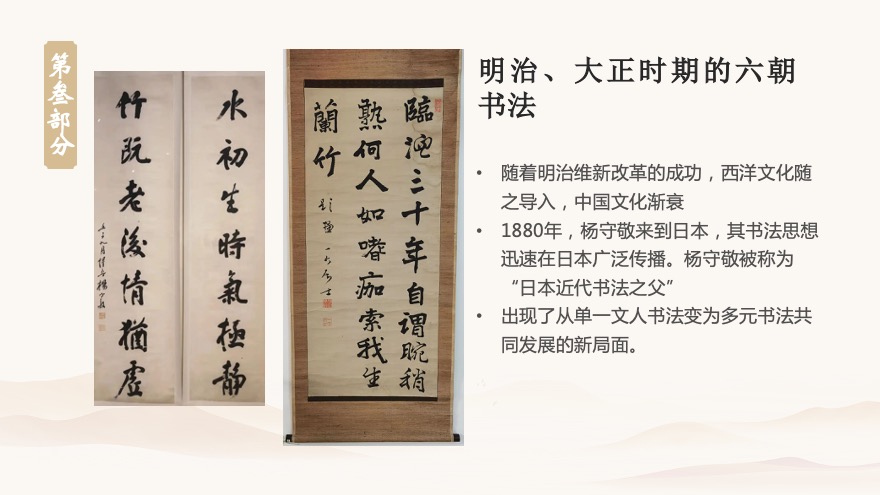 第叁部分
明治、大正时期的六朝
书法
• 随着明治维新改革的成功，西洋文化随
之导入，中国文化渐衰
• 1880年，杨守敬来到日本，其书法思想
迅速在日本广泛传播。杨守敬被称为
“日本近代书法之父”
• 出现了从单一文人书法变为多元书法共
同发展的新局面。
水初生时氣極静
竹既老後情猶虚
臨池三十年自謂晼稍
熟何人如嗜痂索我生
蘭竹